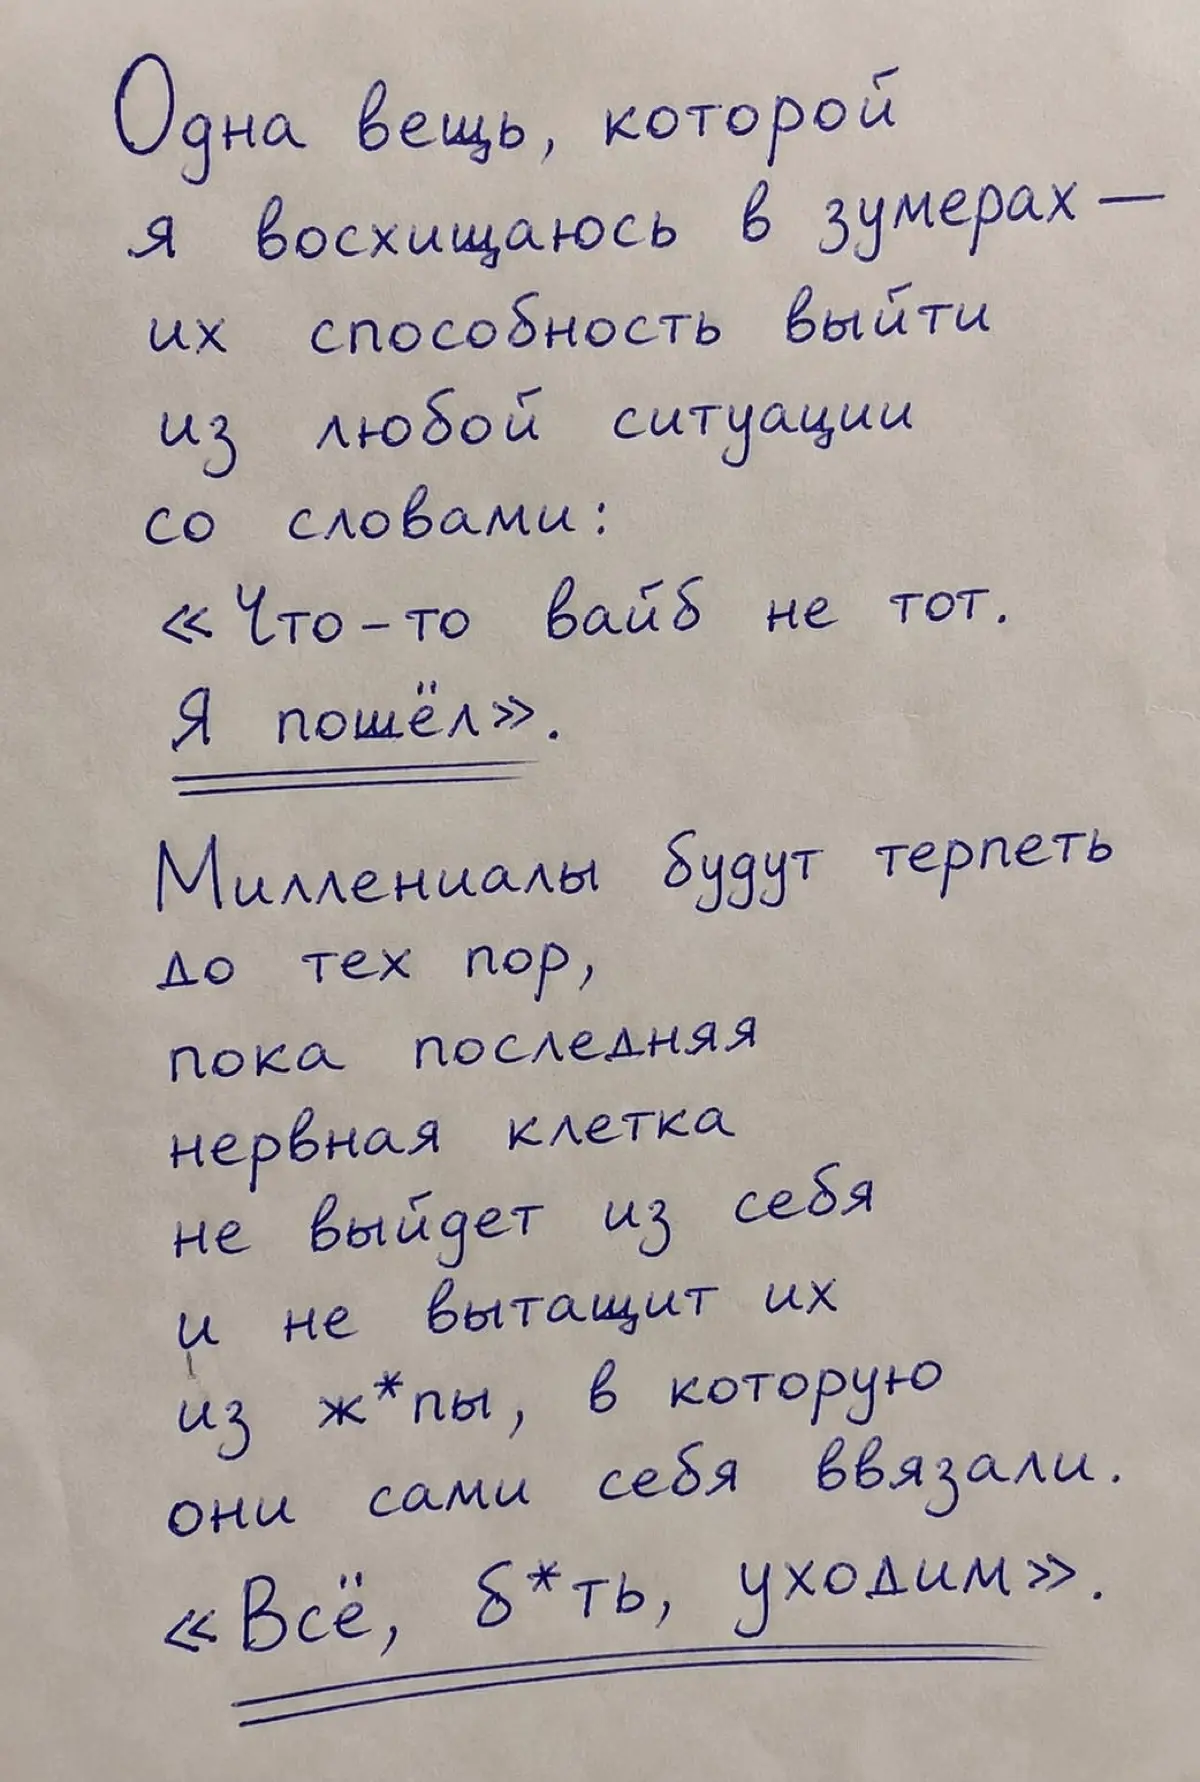 Одна вещь, которой
я восхищаюсь в зумерах —
их способность выйти
из любой ситуации
со словами:
«Что-то вайб не тот.
Я пошёл».
Миллениалы будут терпеть
до тех пор,
пока последняя
нервная клетка
не выйдет из себя
и не вытащит их
из ж*пы, в которую
они сами себя ввязали.
«Всё, б*ть, уходим».